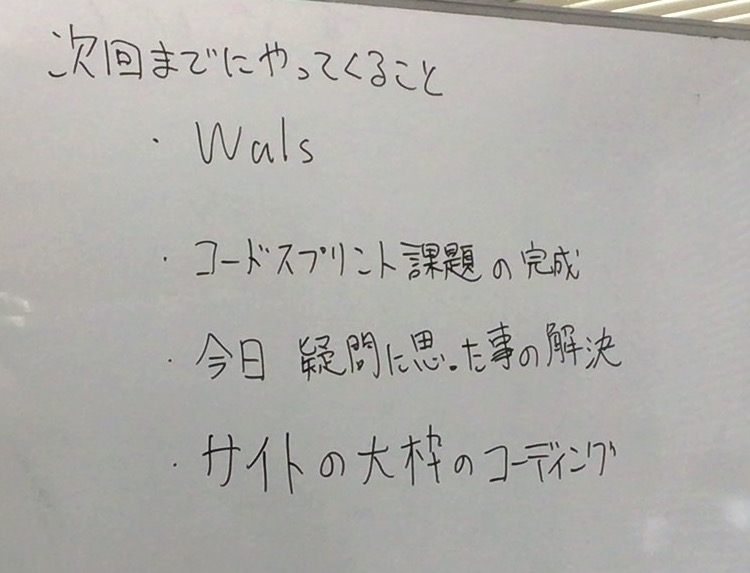 次回までにやってくること
・ Wals
・ コードスプリント課題の完成
・ 今日 疑問に思った事の解決
・ サイトの大枠のコーディング